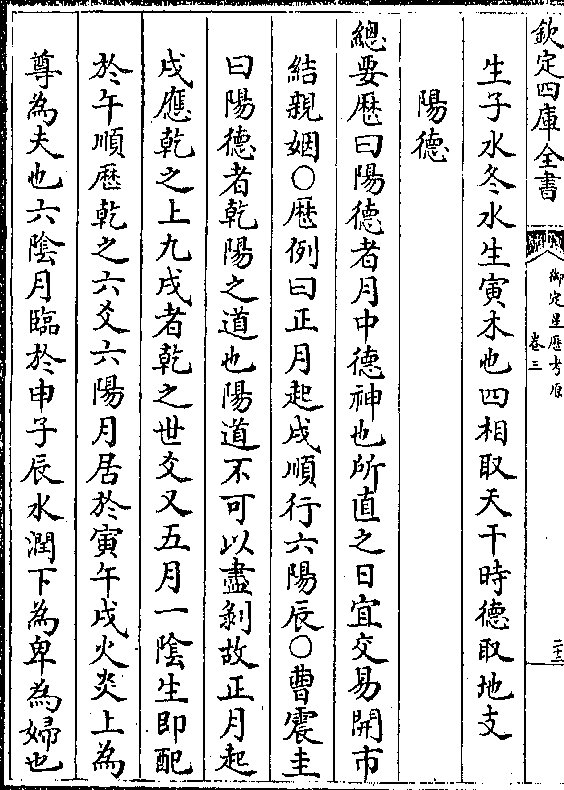 欽定四庫全書
御定星歷考原
卷三
二十二
生子水冬水生寅木也四相取天干時德取地支
陽德
總要歷曰陽德者月中德神也所直之日宜交易開市
結親姻○歷例曰正月起戌順行六陽辰○曹震圭
曰陽德者乾陽之道也陽道不可以盡剝故正月起
戌應乾之上九戌者乾之世爻又五月一陰生即配
於午順歷乾之六爻六陽月居於寅午戌火炎上為
尊為夫也六陰月臨於申子辰水潤下為卑為婦也